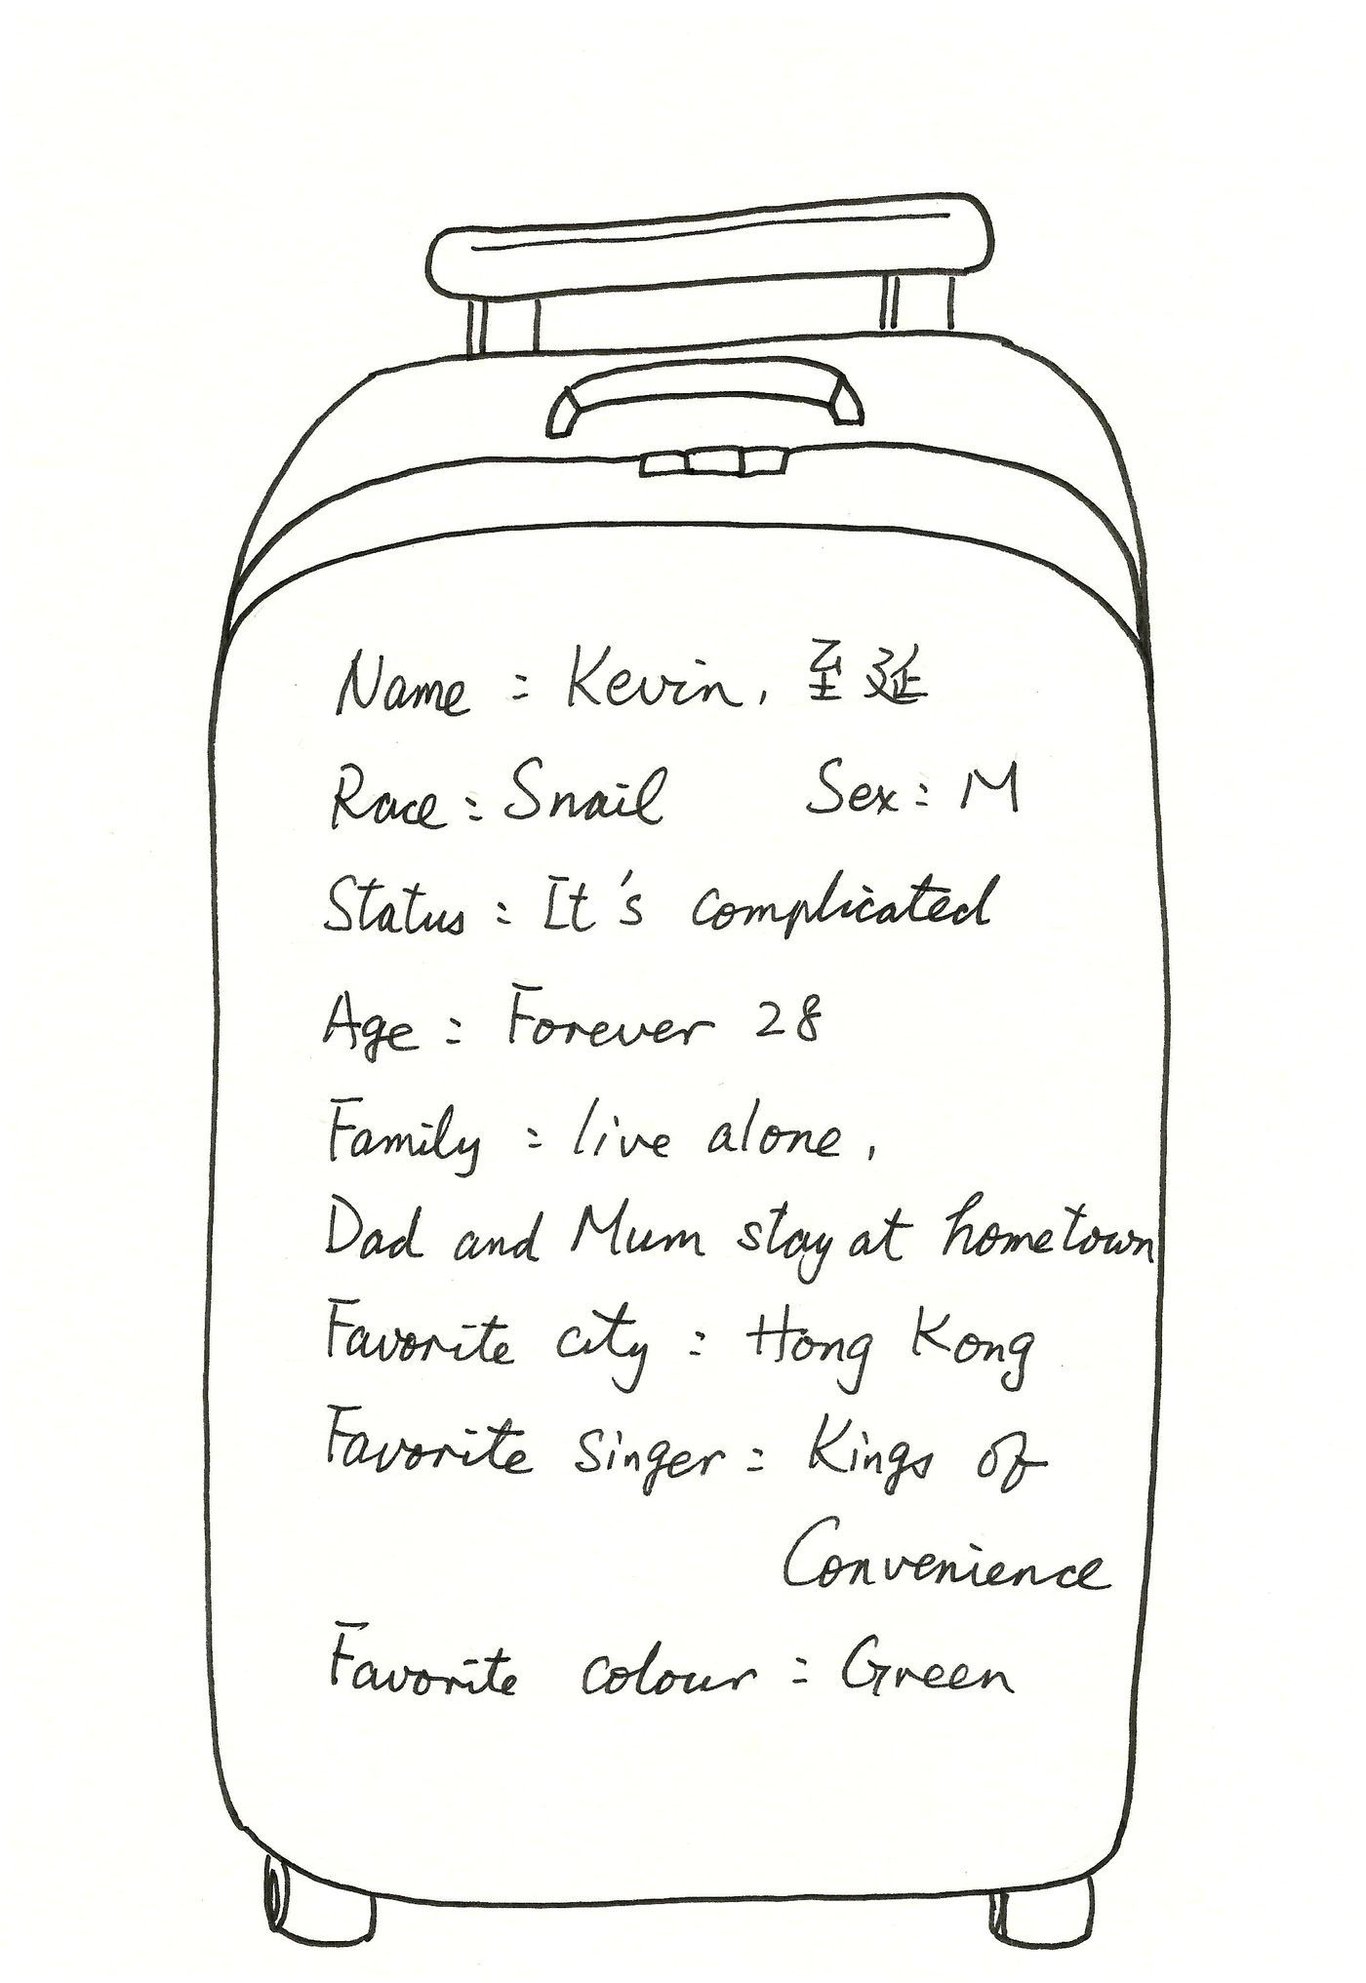 Name : Kevin, 至延
Race : Snail Sex : M
Status : It's complicated
Age : Forever 28
Family : live alone,
Dad and Mum stay at hometown
Favorite city : Hong Kong
Favorite singer : Kings of
Convenience
Favorite colour : Green